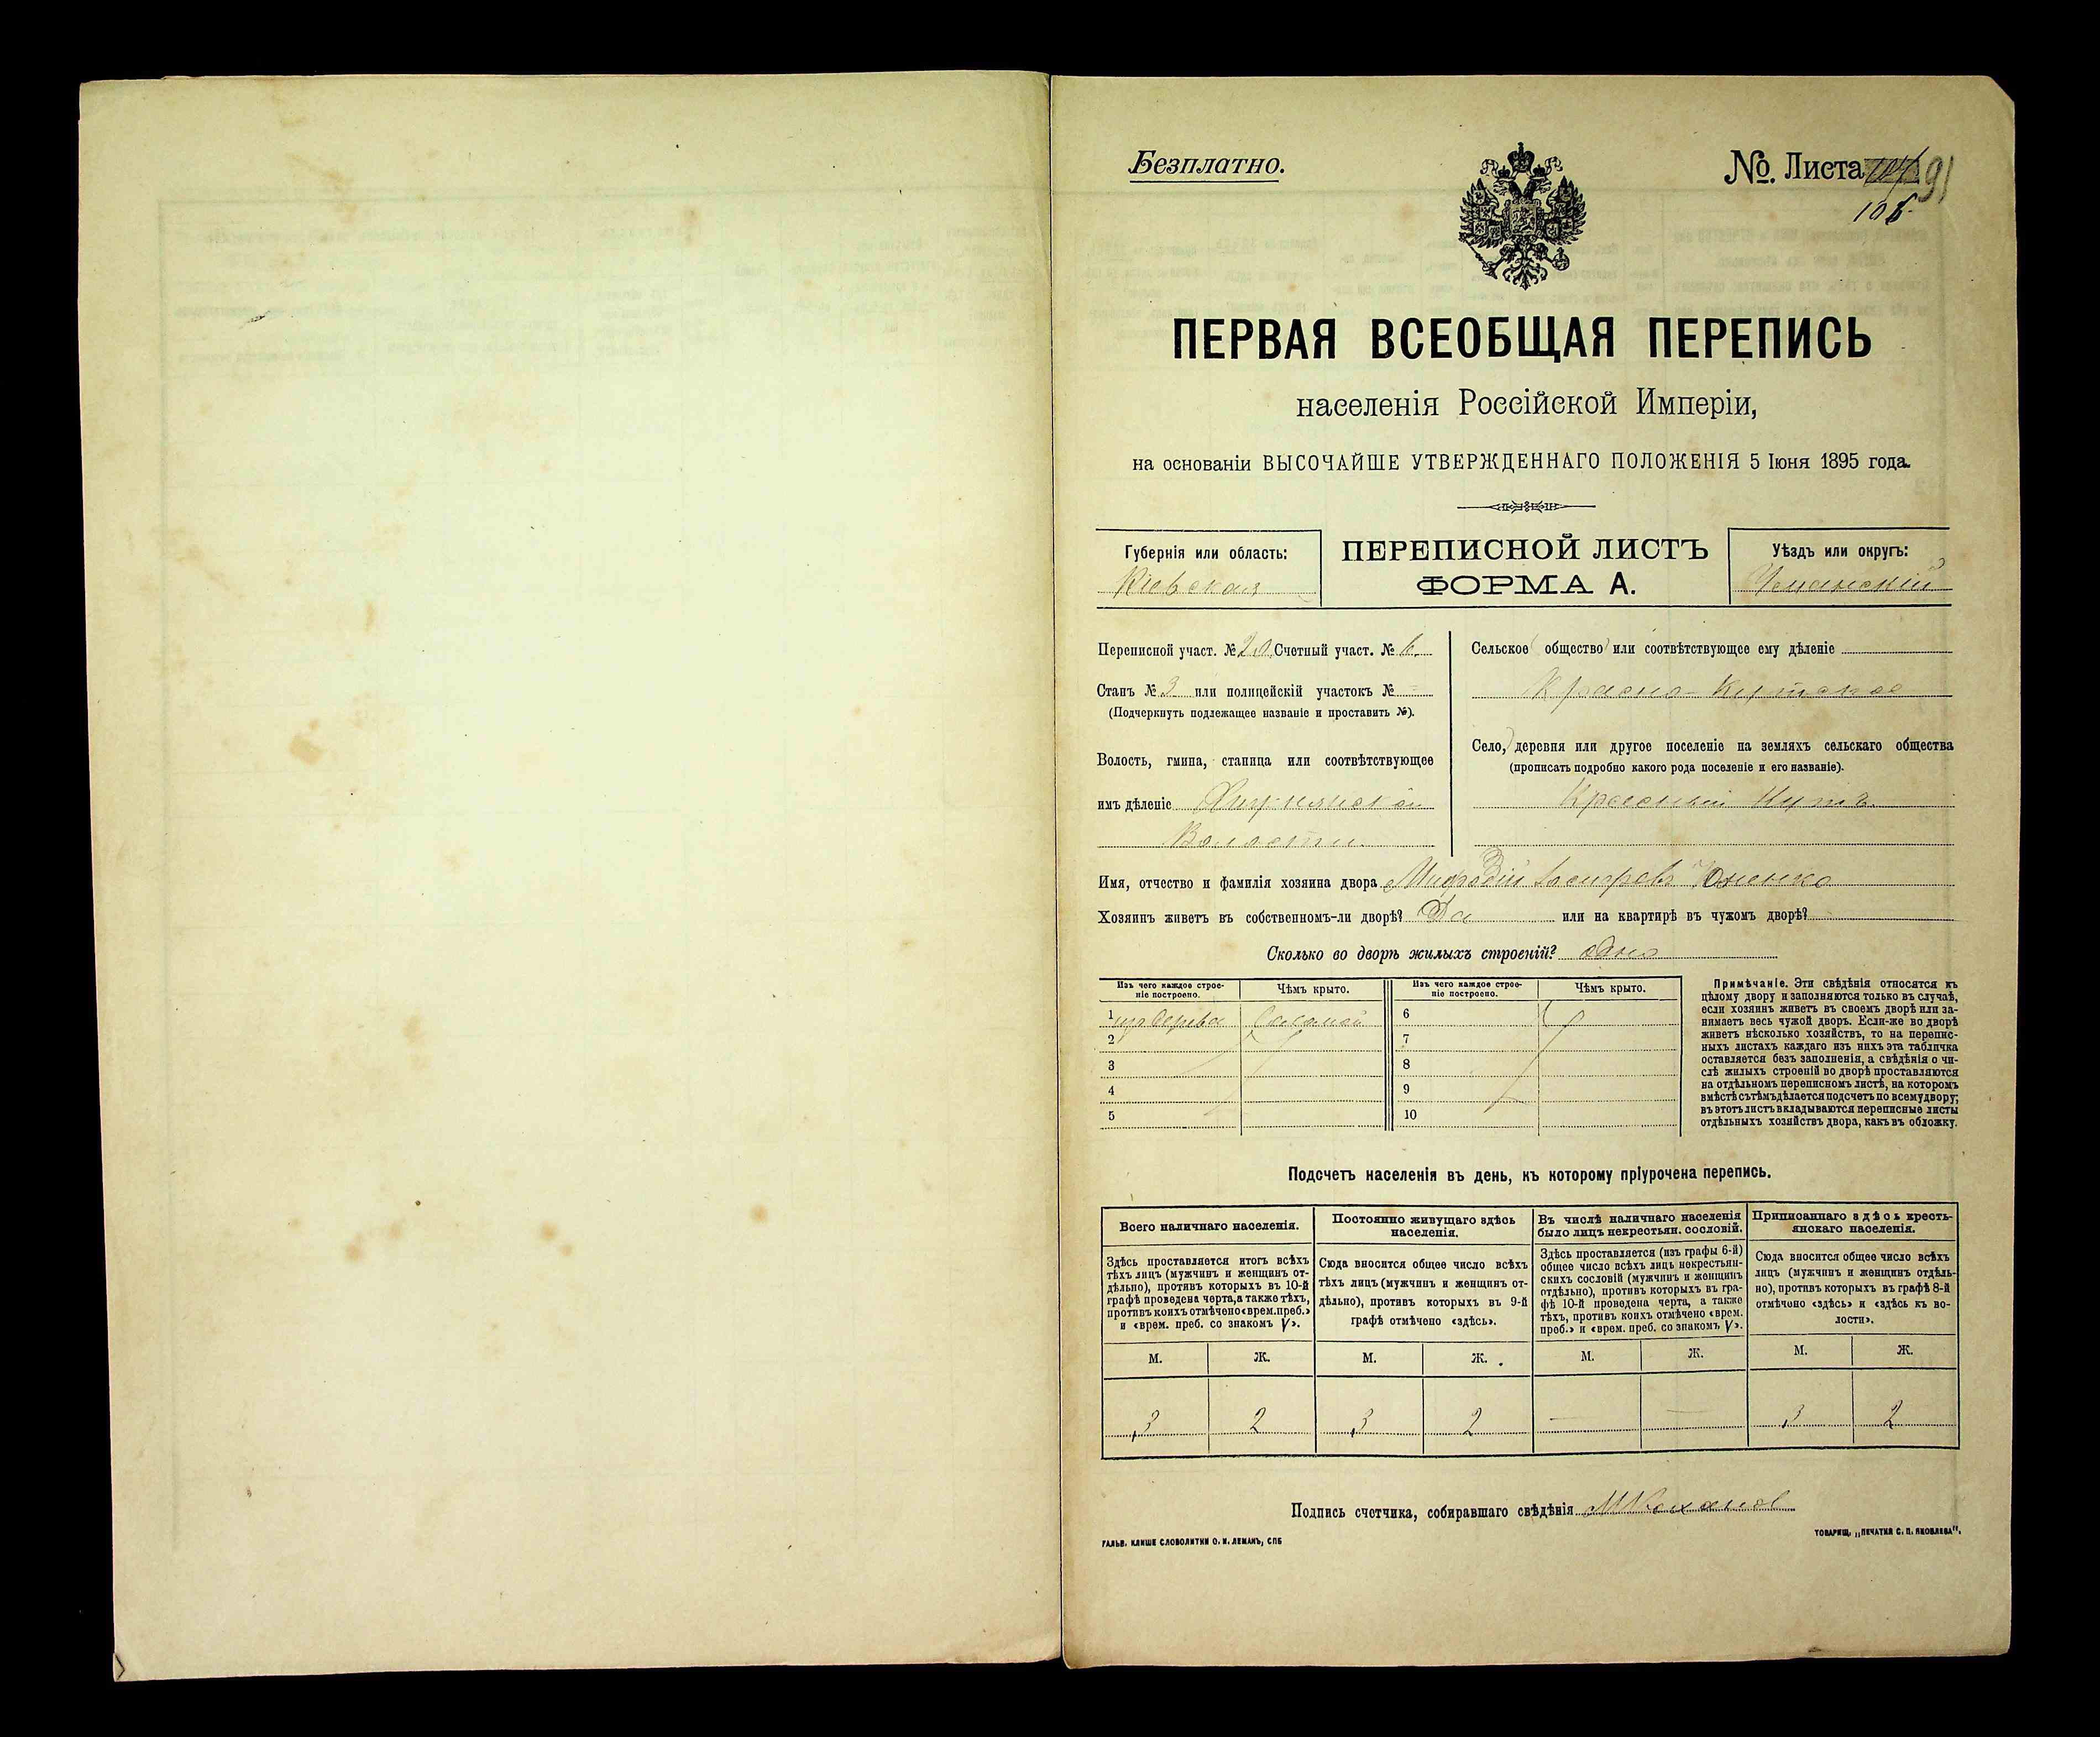 Безплатно.
№. Листа 91
106.
ПЕРВАЯ ВСЕОБЩАЯ ПЕРЕПИСЬ
населенія Россійской Имперіи,
на основаніи ВЫСОЧАЙШЕ УТВЕРЖДЕННАГО ПОЛОЖЕНІЯ 5 Іюня 1895 года.
Губернія или область:
Кіевская
ПЕРЕПИСНОЙ ЛИСТЪ
ФОРМА А.
Уѣздъ или округъ:
Уманскій
Переписной участ. № 20. Счетный участ. № 6.
Станъ № 3 или полицейскій участокъ № -
(Подчеркнуть подлежащее названіе и проставить №).
Волость, гмина, станица или соотвѣтствующее
имъ дѣленіе
Волости
Сельское общество или соотвѣтствующее ему дѣленіе
Красно-Кутское
Село, деревня или другое поселеніе на земляхъ сельскаго общества
(прописать подробно какого рода поселеніе и его названіе).
Красный Кутъ
Имя, отчество и фамилія хозяина двора
Хозяинъ живетъ въ собственномъ-ли дворѣ? Да или на квартирѣ въ чужомъ дворѣ?
Сколько во дворѣ жилыхъ строеній? одно
Изъ чего каждое строе-
ніе построено.
Чѣмъ крыто.
Изъ чего каждое строе-
ніе построено.
Чѣмъ крыто.
1 изъ дерева Соломой 6
2 7
3 8
4 9
5 10
Примѣчаніе. Эти свѣдѣнія относятся къ
цѣлому двору и заполняются только въ случаѣ,
если хозяинъ живетъ въ своемъ дворѣ или за-
нимаетъ весь чужой дворъ. Если-же во дворѣ
живетъ нѣсколько хозяйствъ, то на перепис-
ныхъ листахъ каждаго изъ нихъ эта табличка
оставляется безъ заполненія, а свѣдѣнія о чи-
слѣ жилыхъ строеній во дворѣ проставляются
на отдѣльномъ переписномъ листѣ, на которомъ
вмѣстѣ съ тѣмъ дѣлается подсчетъ по всему двору;
въ этотъ листъ вкладываются переписные листы
отдѣльныхъ хозяйствъ двора, какъ въ обложку.
Подсчетъ населенія въ день, къ которому пріурочена перепись.
Всего наличнаго населенія.
Здѣсь проставляется итогъ всѣхъ
тѣхъ лицъ (мужчинъ и женщинъ от-
дѣльно), противъ которыхъ въ 10-й
графѣ проведена черта, а также тѣхъ,
противъ коихъ отмѣчено «врем. преб.»
и «врем. преб. со знакомъ V».
Постоянно живущаго здѣсь
населенія.
Сюда вносится общее число всѣхъ
тѣхъ лицъ (мужчинъ и женщинъ от-
дѣльно), противъ которыхъ въ 9-й
графѣ отмѣчено «здѣсь».
Въ числѣ наличнаго населенія
было лицъ некрестьян. сословій.
Здѣсь проставляется (изъ графы 6-й)
общее число всѣхъ лицъ некрестьян-
скихъ сословій (мужчинъ и женщинъ
отдѣльно), противъ которыхъ въ гра-
фѣ 10-й проведена черта, а также
тѣхъ, противъ коихъ отмѣчено «врем.
преб.» и «врем. преб. со знакомъ V».
Приписаннаго здѣсь кресть-
янскаго населенія.
Сюда вносится общее число всѣхъ
лицъ (мужчинъ и женщинъ отдѣль-
но), противъ которыхъ въ графѣ 8-й
отмѣчено «здѣсь» и «здѣсь къ во-
лости».
М. Ж. М. Ж. М. Ж. М. Ж.
3 2 3 2 — — 3 2
Подпись счетчика, собиравшаго свѣдѣнія
ГАЛЬВ. КЛИШЕ СЛОВОЛИТНИ О. И. ЛЕМАНЪ, СПБ
ТОВАРИЩ. „ПЕЧАТНЯ С. П. ЯКОВЛЕВА".